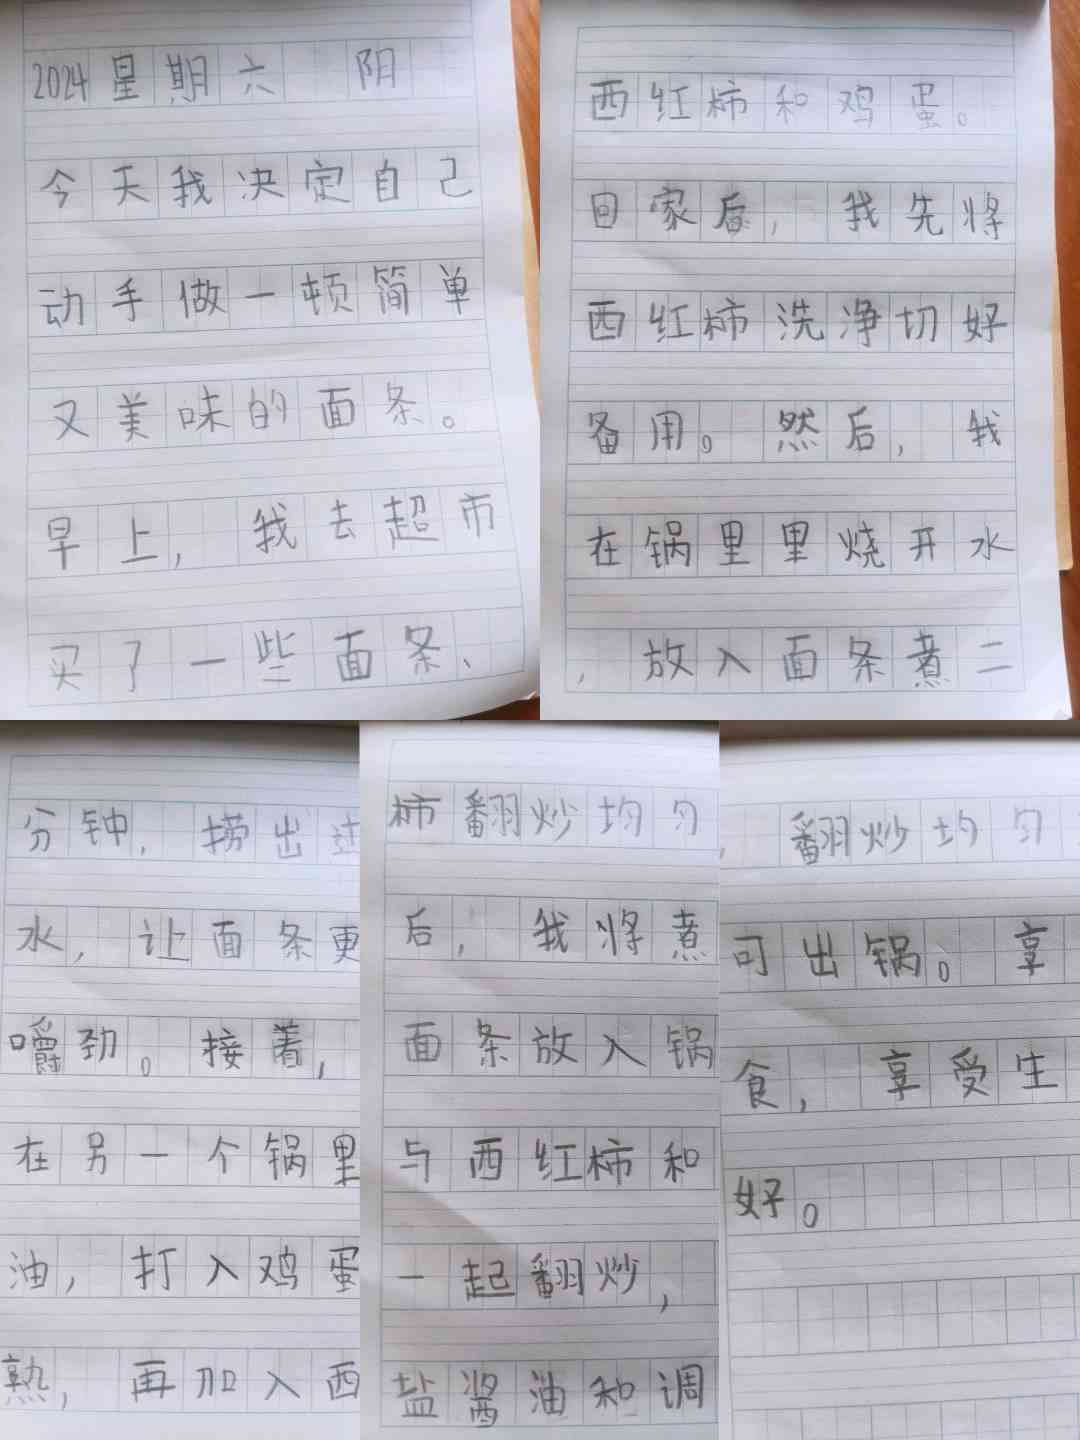 2024 星期六 阴
今天我决定自己
动手做一顿简单
又美味的面条。
早上,我去超市
买了一些面条、
西红柿和鸡蛋。
回家后,我先将
西红柿洗净切好
备用。然后,我
在锅里里烧开水
,放入面条煮二
分钟,捞出过
水,让面条更
嚼劲。接着,
在另一个锅里
油,打入鸡蛋
熟,再加入西
柿翻炒均匀
后,我将煮
面条放入锅
与西红柿和
一起翻炒,
盐酱油和调
,翻炒均匀
可出锅。享
食,享受生
好。